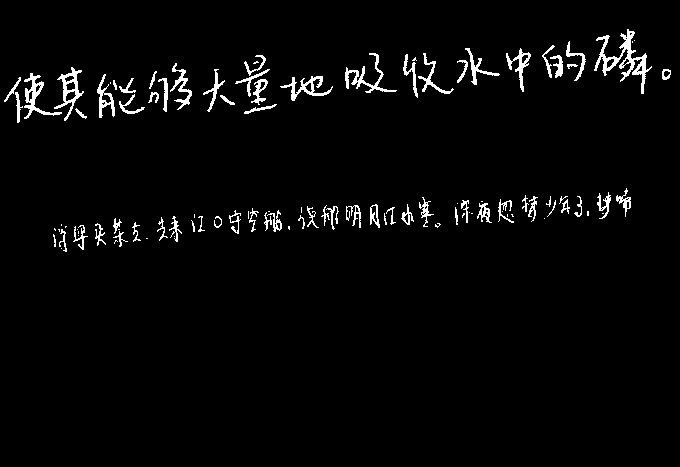 使其能够大量地吸收水中的磷。
浮梁买茶去.去来江口守空船,绕船明月江水寒。深夜忽梦少年事,梦啼